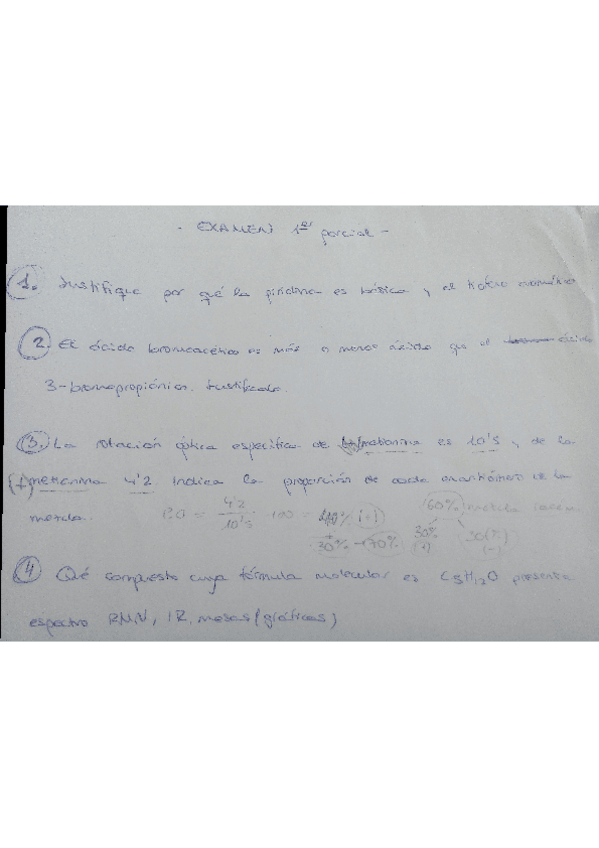 - EXAMEN 1er parcial -
1. Justifique por qué la piridina es básica y el
2. El ácido bromoacético es más o menos ácido que el ácido
3-bromopropiónico. Justifícalo.
3. La rotación óptica específica de es 10's y de la
(+) 4'2. Indica la proporción de cada enantiómero de la
mezcla. P.O = 4'2 / 10's · 100 = 40% (+) 60% mezcla
30% → 70% 30% (+) 30(%) (-)
4 Qué compuesto cuya fórmula molecular es C5H12O presenta
espectro RMN, IR, masas (gráficas)